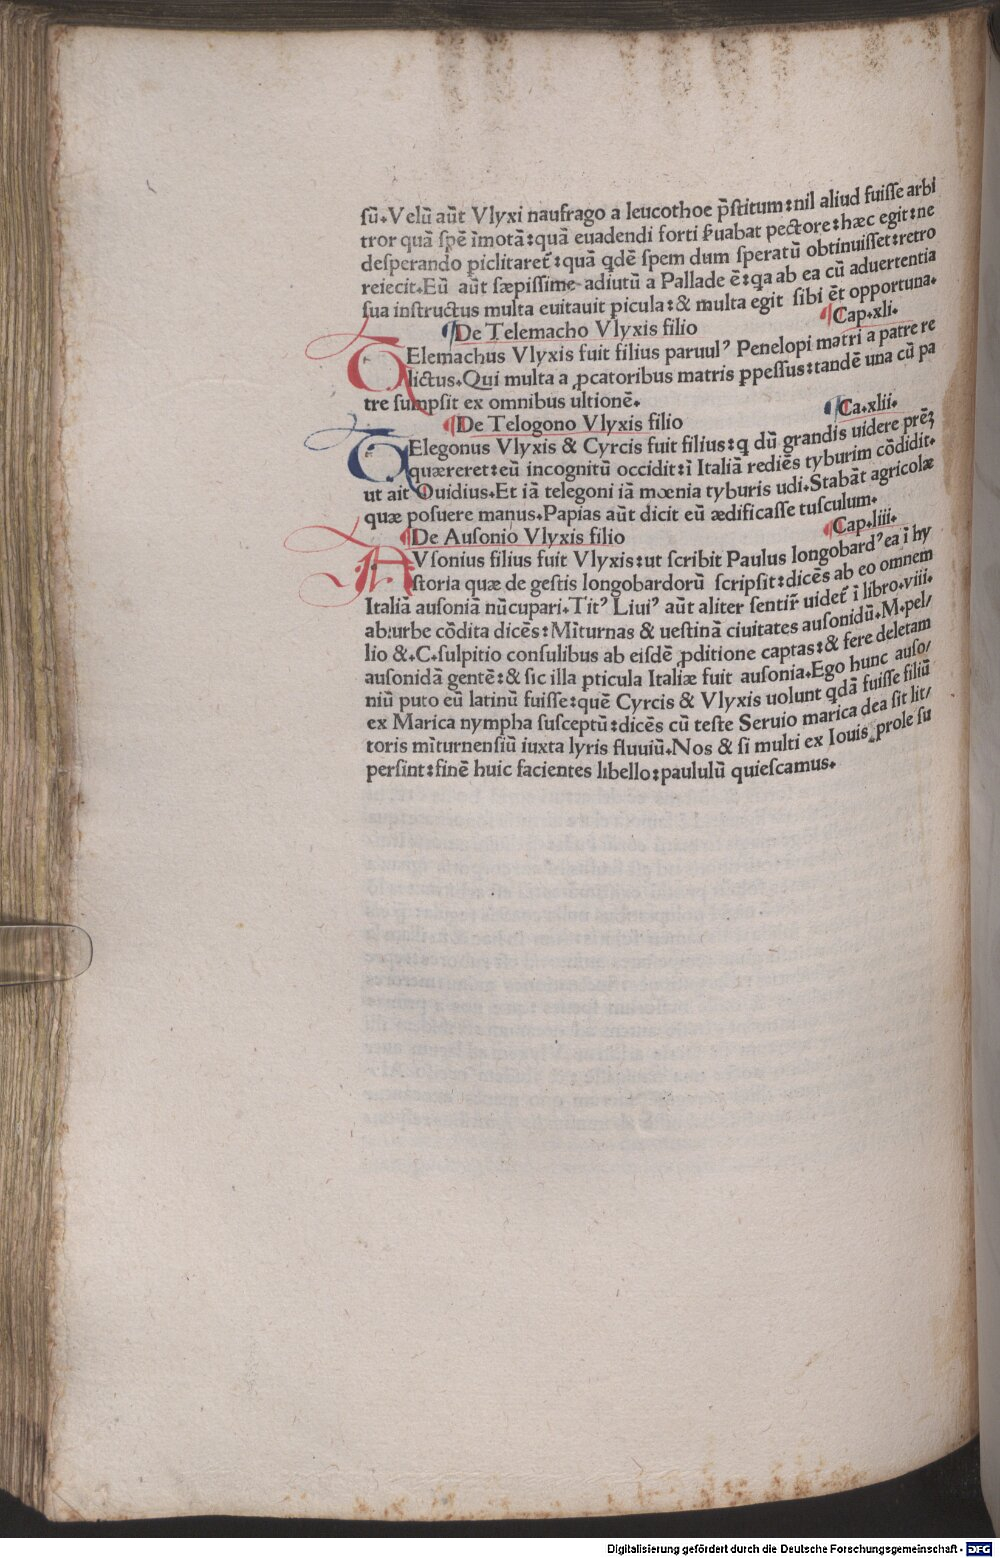 sū. Velū aūt Vlyxi naufrago a leucothoe p̄stitum: nil aliud fuisse arbi
tror quā spē īmotā: quā euadendi forti ẜuabat pectore: hæc egit: ne
desperando piclitaret̄: quā qdē spem dum speratū obtinuisset: retro
reiecit. Eū aūt sæpissime adiutū a Pallade ē: qa ab ea cū aduertentia
sua instructus multa euitauit picula: & multa egit sibi ēt opportuna.
¶De Telemacho Vlyxis filio ¶Cap. xli.
TElemachus Vlyxis fuit filius paruulꝰ Penelopi matri a patre re
lictus. Qui multa a ꝓcatoribus matris ppessus: tandē una cū pa
tre sumpsit ex omnibus ultionē.
¶De Telogono Vlyxis filio ¶Ca. xlii.
TElegonus Vlyxis & Cyrcis fuit filius: q dū grandis uidere prēꝫ
quæreret: eū incognitū occidit: ī Italiā rediēs tyburim cōdidit.
ut ait Ouidius. Et iā telegoni iā mœnia tyburis udi. Stabāt agricolæ
quæ posuere manus. Papias aūt dicit eū ædificasse tusculum.
¶De Ausonio Vlyxis filio ¶Cap. liii.
AVsonius filius fuit Vlyxis: ut scribit Paulus longobardꝰ ea ī hy
storia quæ de gestis longobardorū scripsit: dicēs ab eo omnem
Italiā ausoniā nūcupari. Titꝰ Liuiꝰ aūt aliter sentir̄ uidet̄ ī libro. viii.
ab urbe cōdita dicēs: Mīturnas & uestinā ciuitates ausonidū. M. pel/
lio &. C. sulpitio consulibus ab eisdē ꝓditione captas: & fere deletam
ausonidā gentē: & sic illa pticula Italiæ fuit ausonia. Ego hunc auso/
niū puto eū latinū fuisse: quē Cyrcis & Vlyxis uolunt qdā fuisse filiū
ex Marica nympha susceptū: dicēs cū teste Seruio marica dea sit lit/
toris mīturnensiū iuxta lyris fluuiū. Nos & si multi ex Iouis prole su
persint: finē huic facientes libello: paululū quiescamus.
Digitalisierung gefördert durch die Deutsche Forschungsgemeinschaft - DFG